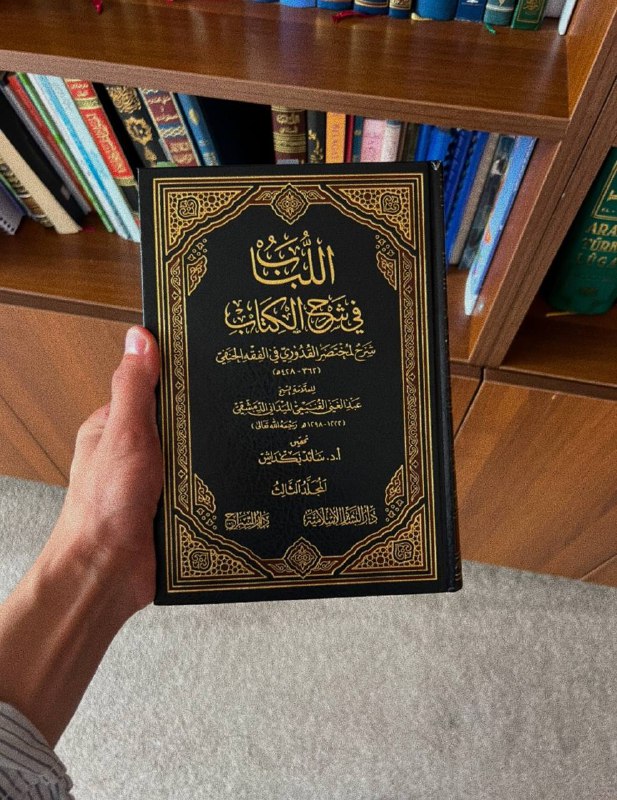 اللُّبَاب
في شرح الكتاب
شرح لمختصر القدوري في الفقه الحنفي
(٣٦٢ - ٤٢٨هـ)
للعلامة الشيخ
عبد الغني الغنيمي الميداني الدمشقي
(١٢٢٢-١٢٩٨هـ رحمه الله تعالى)
تحقيق
أ.د. سائد بكداش
المجلد الثالث
دار البشائر الإسلامية
دار السراج